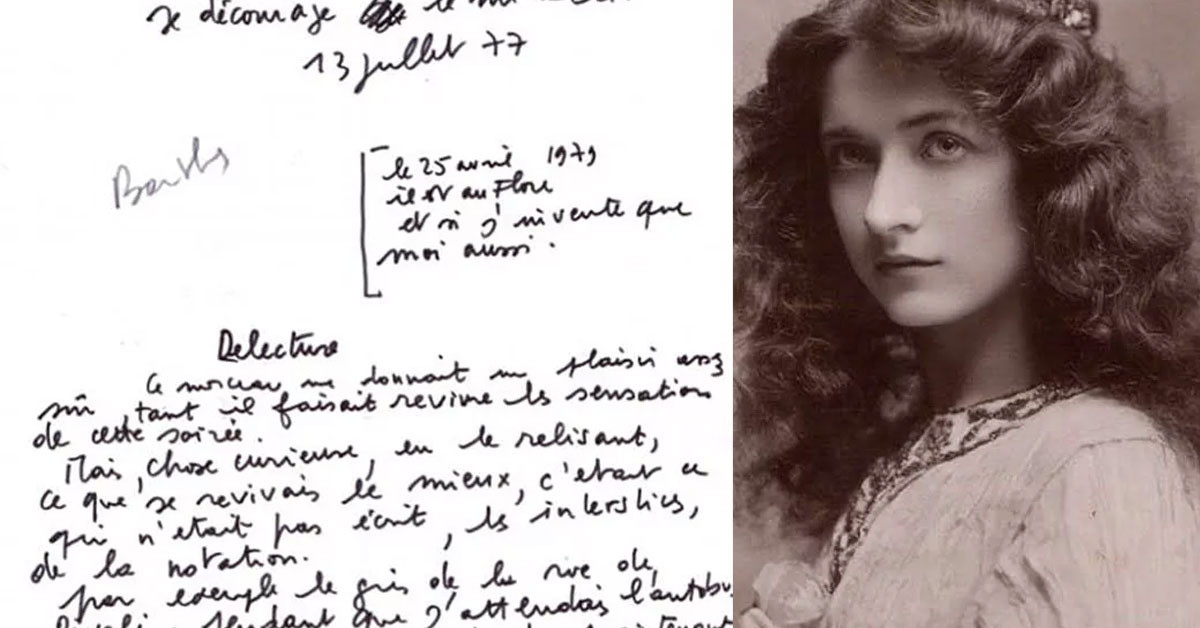 je décourage le
13 juillet 77
Barthes
le 25 avril 1979
il est au Flore
et si j'invente que
moi aussi.
Relecture
Ce morceau me donnait un plaisir assez
sûr, tant il faisait revivre les sensations
de cette soirée.
Mais, chose curieuse, en le relisant,
ce que je revivais le mieux, c'était ce
qui n'était pas écrit, les interstices,
de la notation.
par exemple le gris de la rue de
Rivoli pendant que j'attendais l'autobus
maintenant